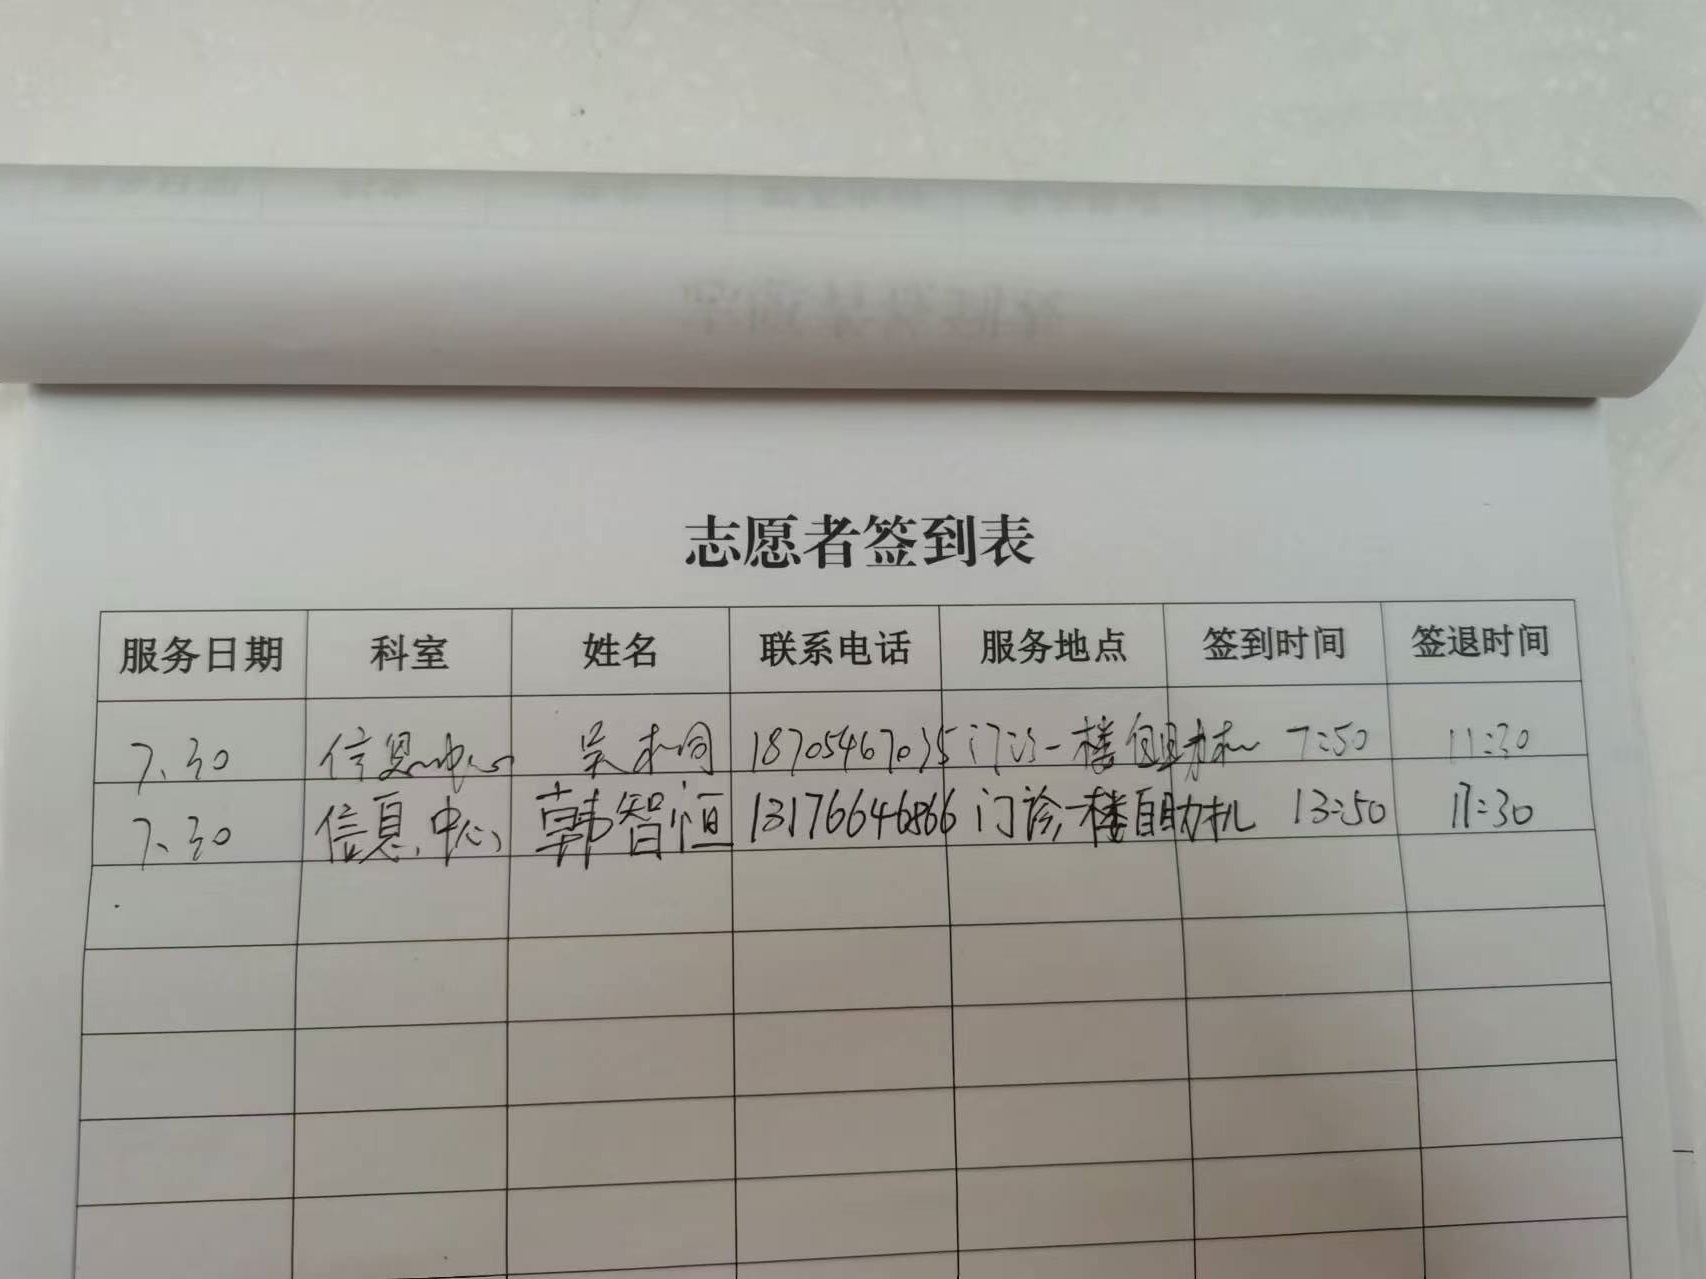 志愿者签到表
服务日期 科室 姓名 联系电话 服务地点 签到时间 签退时间
7.30 信息中心 吴 18705467035 门诊一楼自助机 7:50 11:30
7.30 信息中心 韩智恒 13176646866 门诊一楼自助机 13:50 17:30